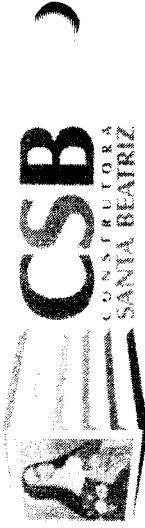 CSB
CONSTRUTORA
SANTA BEATRIZ